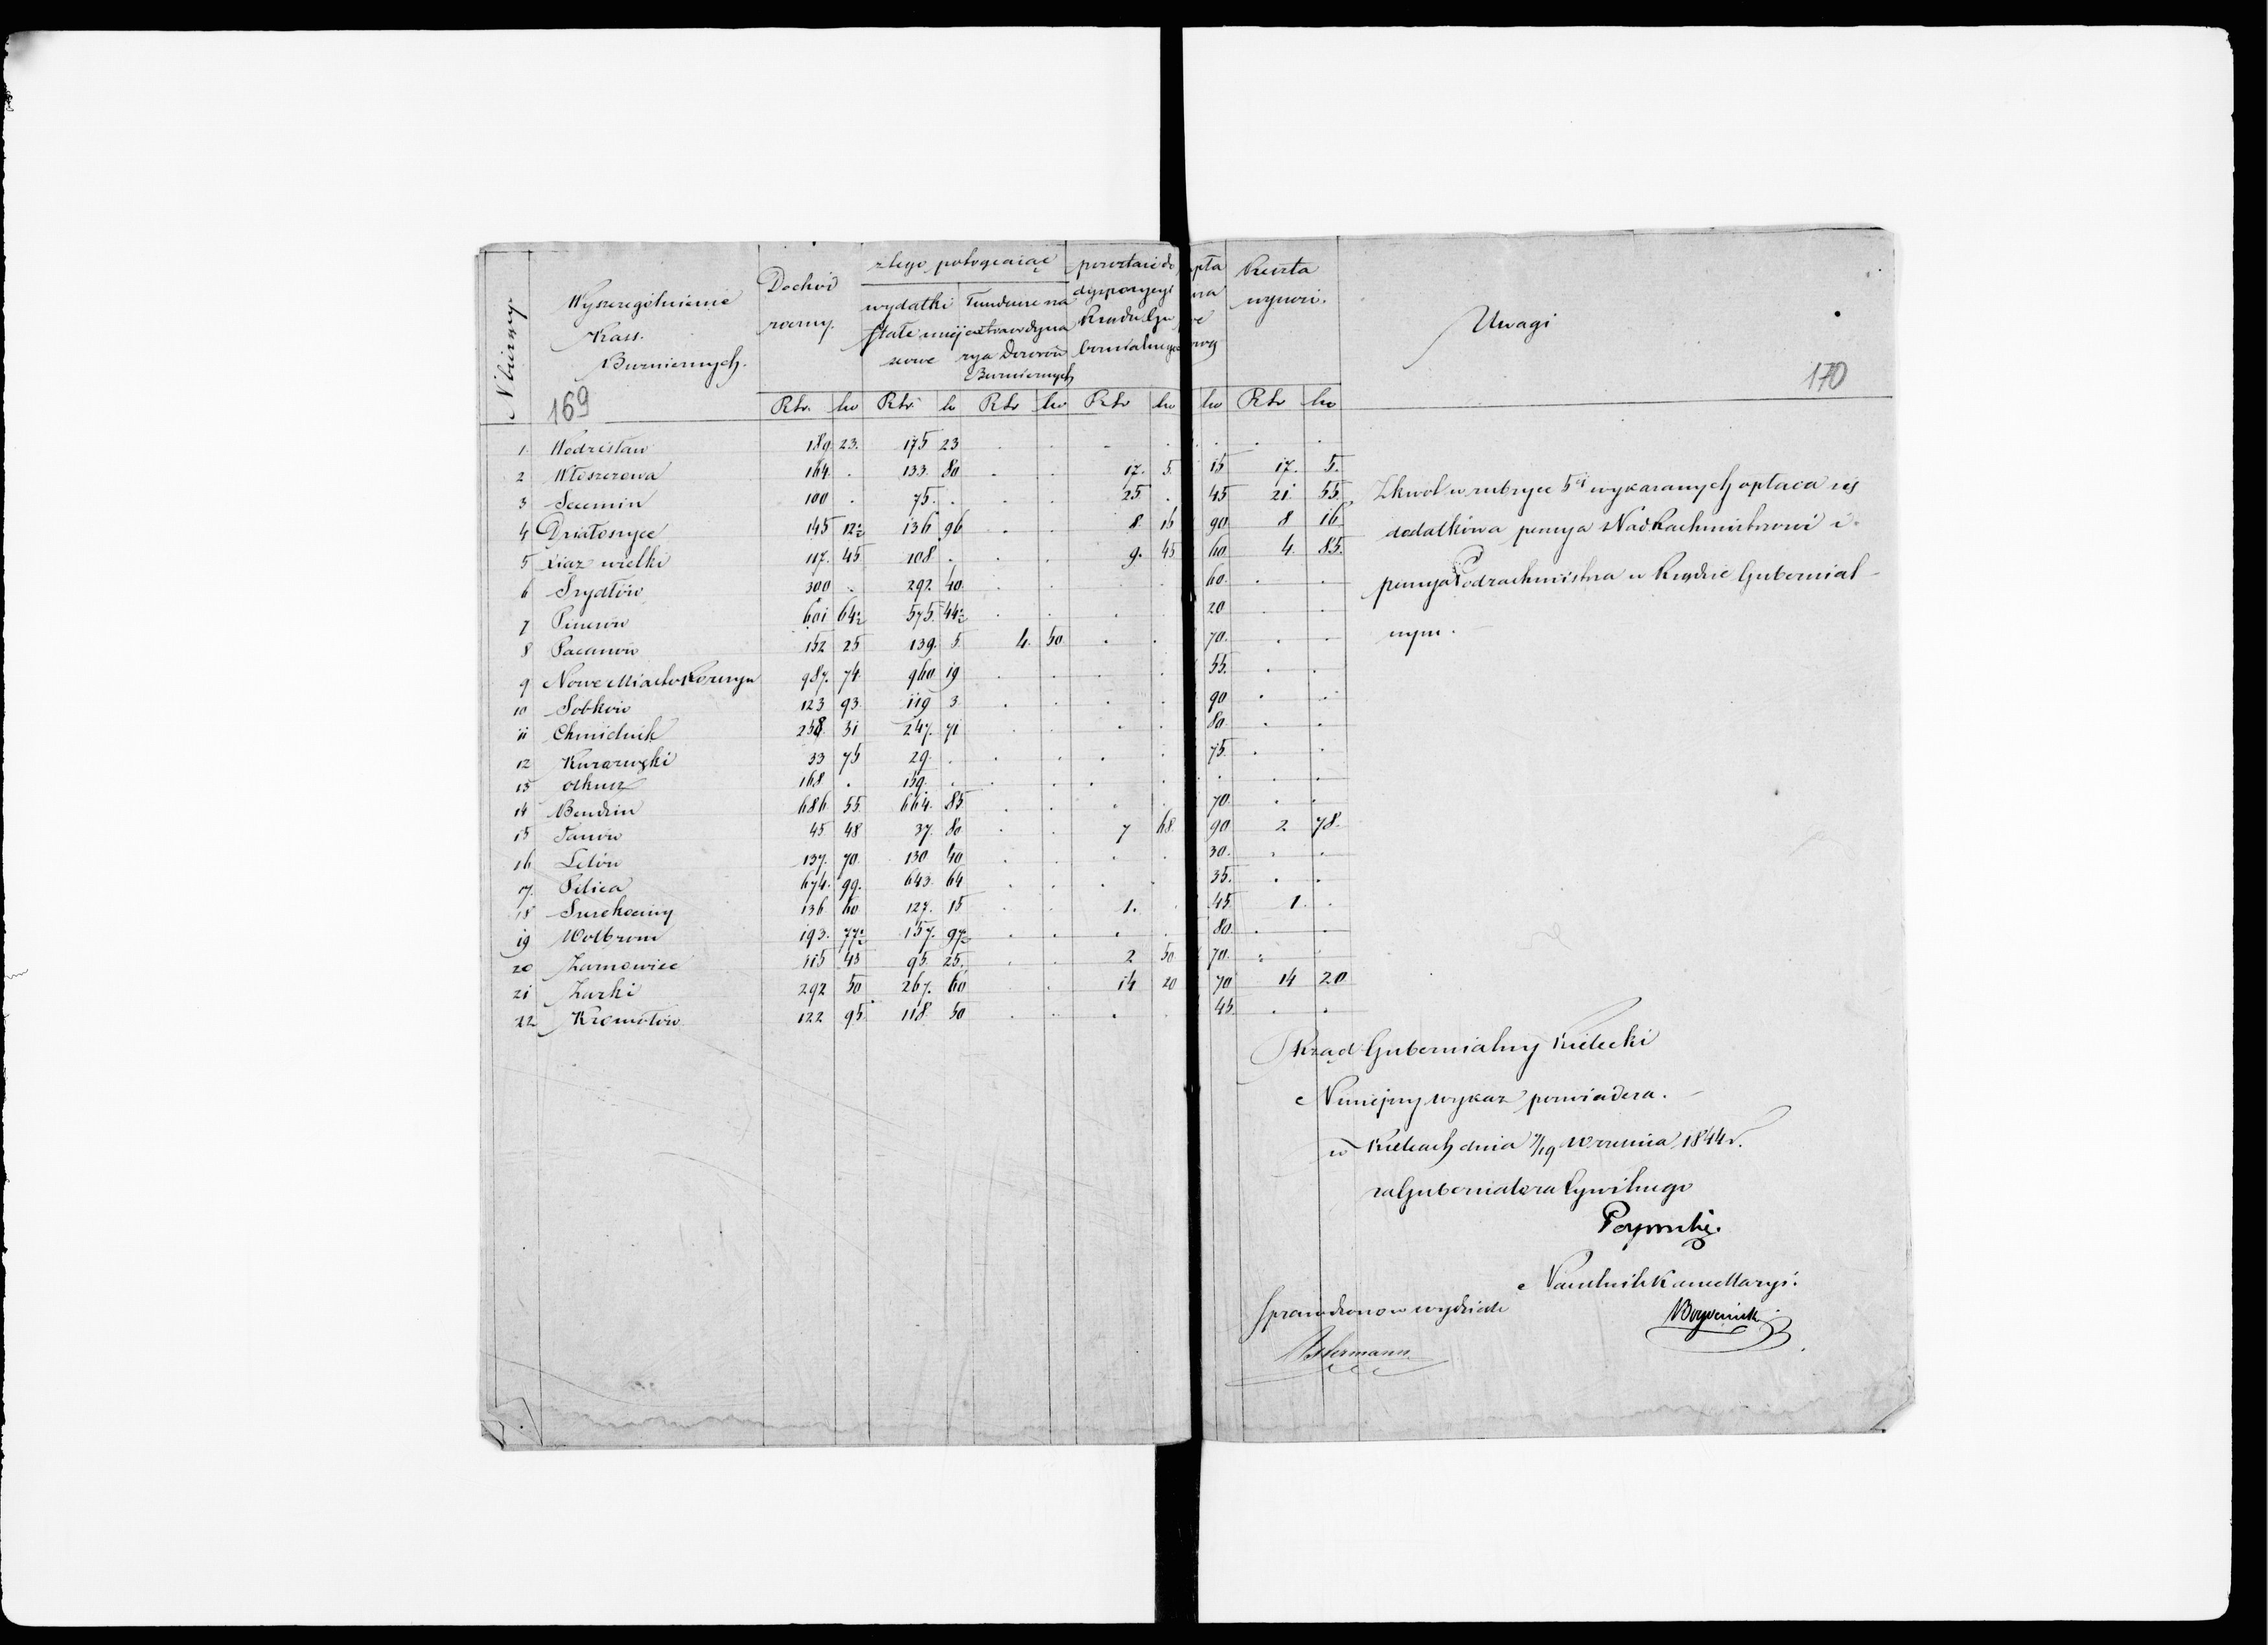 N bieżący
Wyszczególnienie
Kass.
Bużniczych.
169
Dochód
roczny.
z tego potrącając
wydatki
stałe miej
scowe
Fundusz na
extraordyna
rya Dozorów
Bużniczych
pozostaie do
dyspozycyi
Rządu Gu
bernialnego
Rsr. ko Rsr ko Rsr ko Rsr ko
1 Wodzisław 189 23. 175 23 . . . .
2 Włoszczowa 164 . 133. 80 . . 17. 5.
3 Secemin 100 . 75. . . . 25 .
4 Działoszyce 145 12½ 136 96 . . 8 16
5 Xiąż wielki 117. 45 108 . . . 9. 45
6 Szydłów 300 . 292. 40. . . .
7 Pinczów 601 64½ 575. 44½ . . . .
8 Pacanów 152 25 139. 5. 4. 50 . .
9 Nowe Miasto Korczyn 987. 74. 960 19 . . . .
10 Sobków 123 93. 119 3 . . . .
11 Chmielnik 258. 31 247. 71 . . . .
12 Kurozwęki 33 75 29. . . . . .
13 Olkusz 168 . 159. . . . . .
14 Bendzin 686 55. 664. 85 . . . .
15 Janów 45 48 37. 80. . . 7 68.
16 Lelów 137. 70. 130 40 . . . .
17. Pilica 674. 99. 643. 64 . . . .
18 Szczekociny 136 60 127. 15 . . 1. .
19 Wolbrom 193. 77½ 157. 97½ . . . .
20 Żarnowiec 115 43 95. 25. . . 2 50
21 Żarki 292 50 267. 60 . . 14 20
22 Kromołów 122 95. 118. 50 . . . .
Reszta
wynosi.
Uwagi
170
ko Rsr ko
. . .
15 17. 5.
45 21. 55.
90. 8 16.
60 4. 85.
60. . .
20 . .
70. . .
55. . .
90 . .
80. . .
75. . .
. . .
70. . .
90 2. 78.
30. . .
35. . .
45. 1. .
80. . .
70. . .
70 14 20
45. . .
Z kwot w rubryce 5ej wykazanych opłaca się
dodatkowa pensya Nadrachmistrzowi i
pensya Podrachmistrza w Rządzie Gubernial
nym.
Rząd Gubernialny Kielecki
Niniejszy wykaz poświadcza.
w Kielcach dnia 7/19 Września 1844 r.
za Gubernatora Cywilnego
Naczelnik Kancellaryi.
Sprawdzono w wydziale